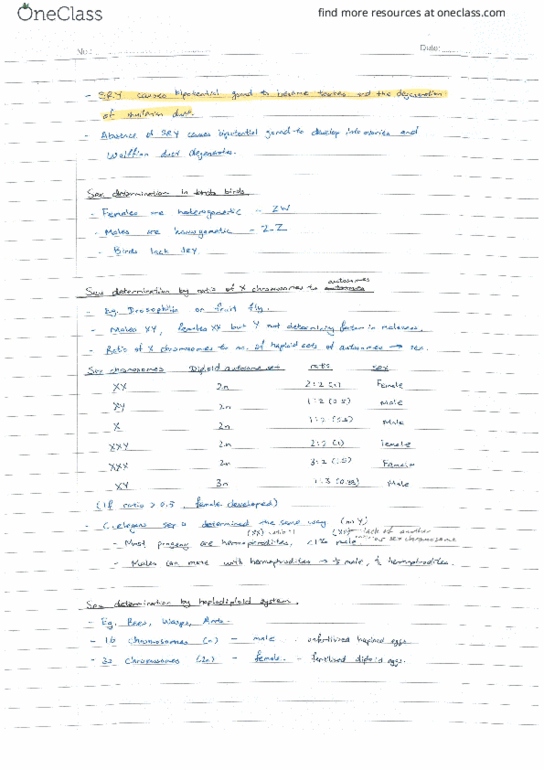 OneClass
find more resources at oneclass.com
No.:
Date:
- SRY causes bipotential gonad to become testes and the degeneration
of mullerian duct.
- Absence of SRY causes bipotential gonad to develop into ovaries and
Wolffian duct degenerates.
Sex determination in birds
- Females are heterogametic - ZW
- Males are homogametic - Z-Z
- Birds lack SRY
Sex determination by ratio of X chromosomes to autosomes
- Eg. Drosophila or fruit fly.
- Males XY, females XX but Y not determining factor in maleness.
- Ratio of X chromosomes to no. of haploid sets of autosomes → sex.
Sex chromosomes Diploid autosome set ratio sex
XX 2n 2:2 (1) Female
XY 2n 1:2 (0.5) Male
X 2n 1:2 (0.5) Male
XXY 2n 2:2 (1) Female
XXX 2n 3:2 (1.5) Female
XY 3n 1:3 (0.33) Male
(if ratio > 0.5, female developed)
- C. elegans sex is determined the same way (no Y)
(XX) (X) lack of another
- Most progeny are hermaphrodites, <1% male sex chromosome
- Males can mate with hermaphrodites → ½ male, ½ hermaphrodites.
Sex determination by haplodiploid system.
- Eg. Bees, Wasps, Ants.
- 16 chromosomes (n) - male - unfertilized haploid eggs
- 32 chromosomes (2n) - female - fertilized diploid eggs.